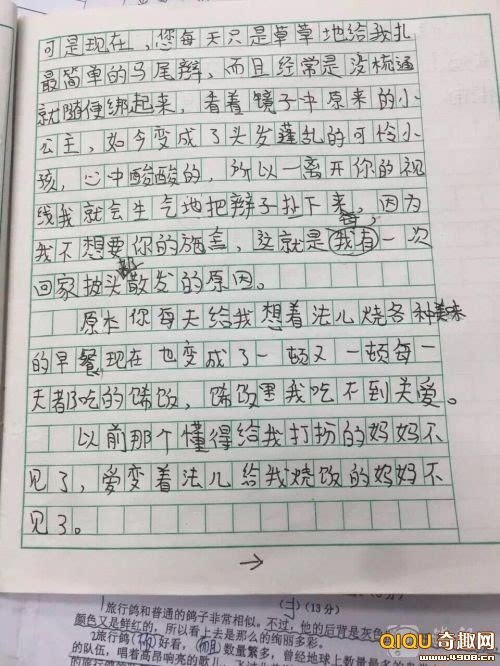 可是现在，您每天只是草草地给我扎
最简单的马尾辫，而且经常是没梳通
就随便绑起来，看着镜子中原来的小
公主，如今变成了头发蓬乱的可怜小
孩，心中酸酸的，所以一离开你的视
线我就会生气地把辫子扯下来，因为
我不想要你的施舍，这就是我有一次
回家披头散发的原因。
原本你每天给我想着法儿烧各种美味
的早餐现在也变成了一顿又一顿每一
天都吃的饭，饭里我吃不到关爱。
以前那个懂得给我打扮的妈妈不
见了，爱变着法儿给我烧饭的妈妈不
见了。
→
(二)(13分)
旅行鸽和普通的鸽子非常相似。不过，他的后背是灰色
颜色又是鲜红的，所以看上去是那么的绚丽多彩。
2旅行鸽好看，而且数量繁多，曾经地球上数量最多
的队伍，唱着高昂响亮的歌儿，
QIQU奇趣网
www.4908.cn